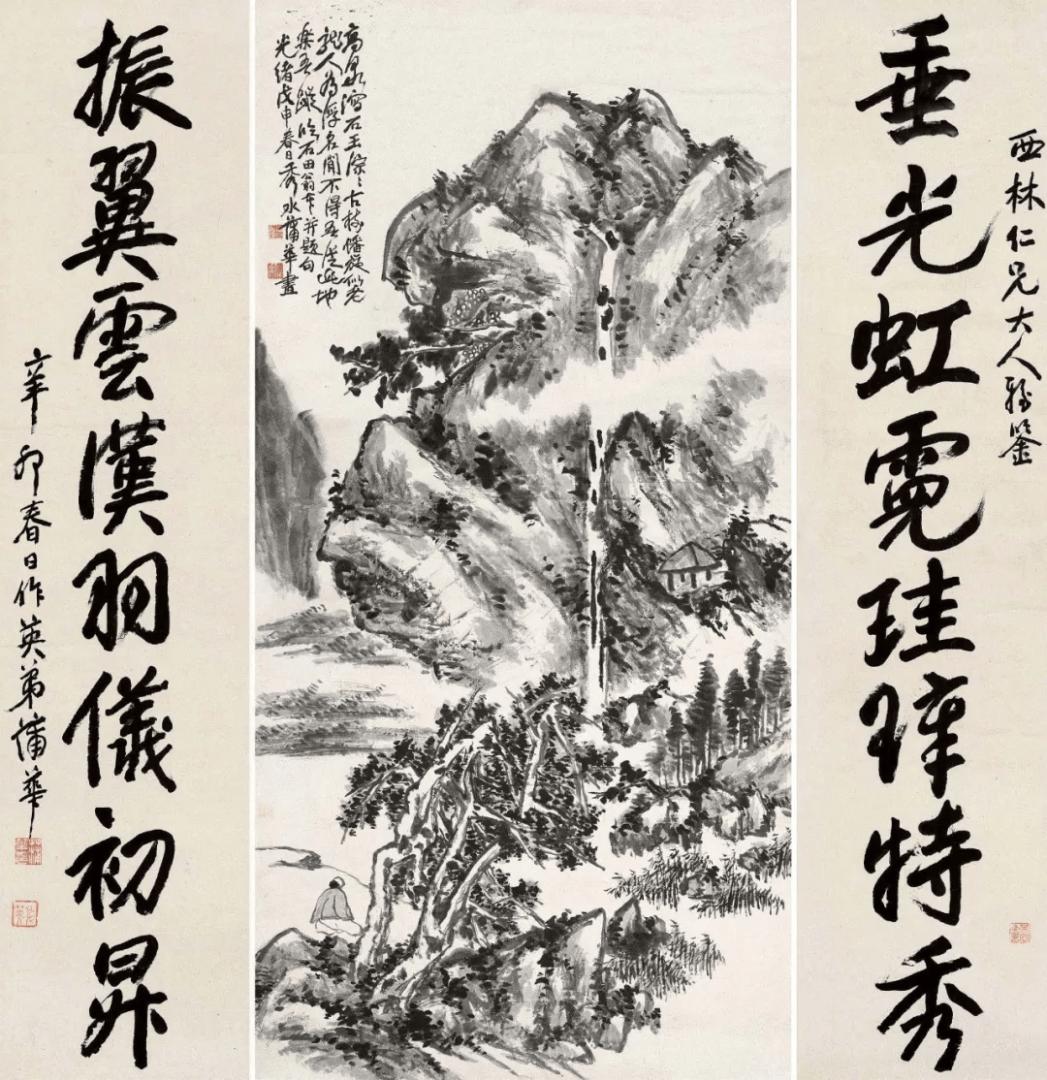 西林仁兄大人雅鑒
垂光虹霓珪璋特秀
高泉瀉石玉淙淙古樹幡旋似老
龍人為浮名閒不得無從此地
樂吾蹤臨石田翁本并題句
光緒戊申春日秀水蒲華畫
振翼雲漢羽儀初昇
辛卯春日作英弟蒲華